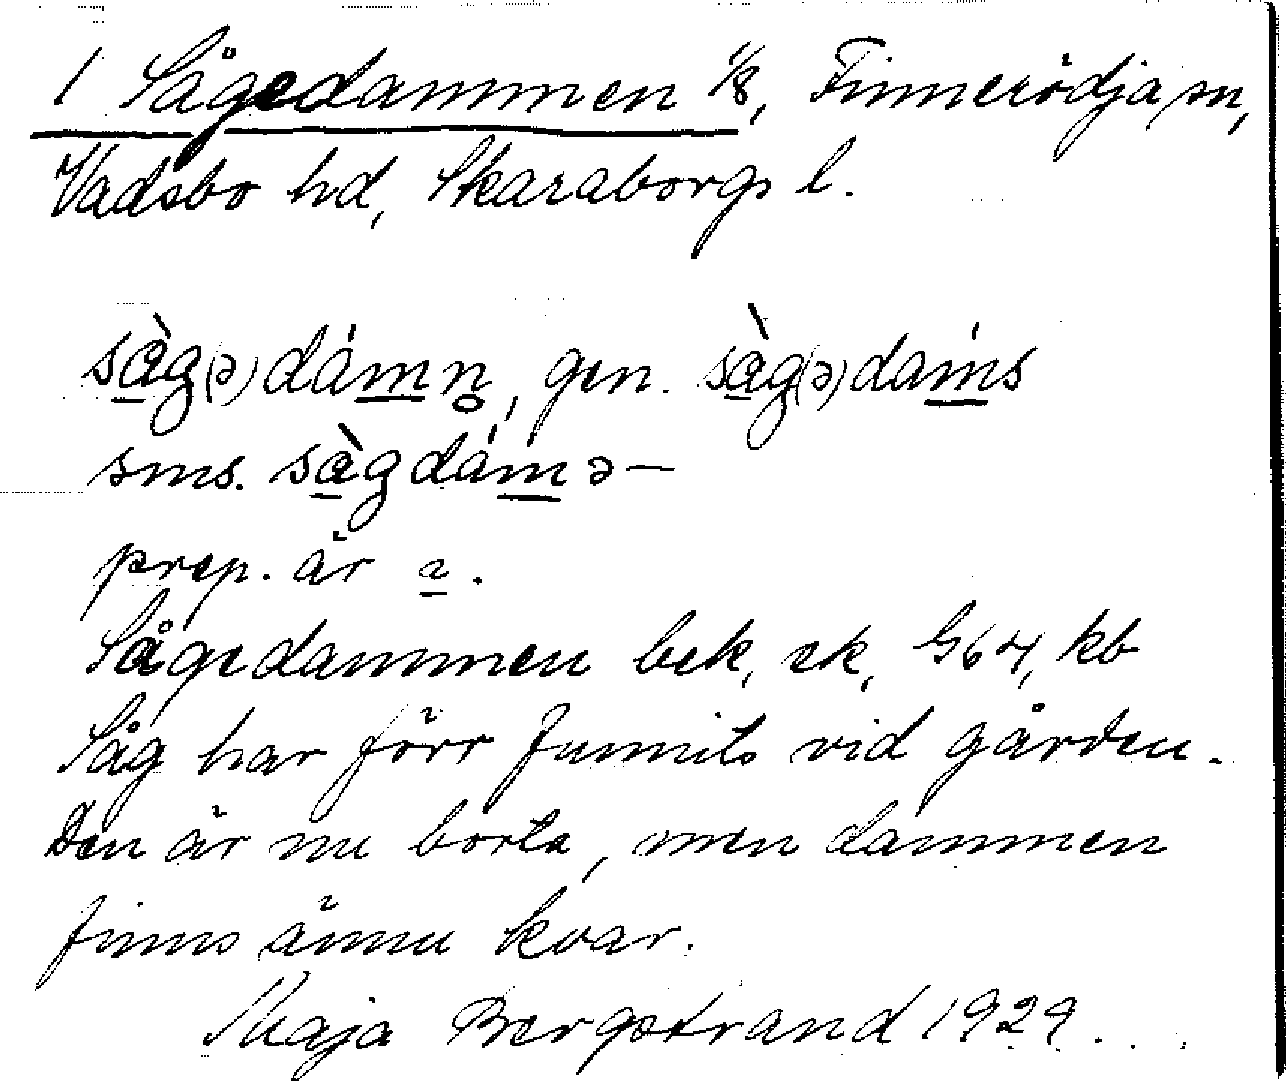 1 Sågedammen 1/8, Finnerödja sn,
Vadsbo hd, Skaraborgs l.
sàg(ə)dámn̥, gen. sàg(ə)dáms
sms. sàgdámə—
prep. är
Sågedammen bek, ek, G64, kb
Såg har förr funnits vid gården.
Den är nu borta, men dammen
finns ännu kvar.
Maja Bergstrand 1929.